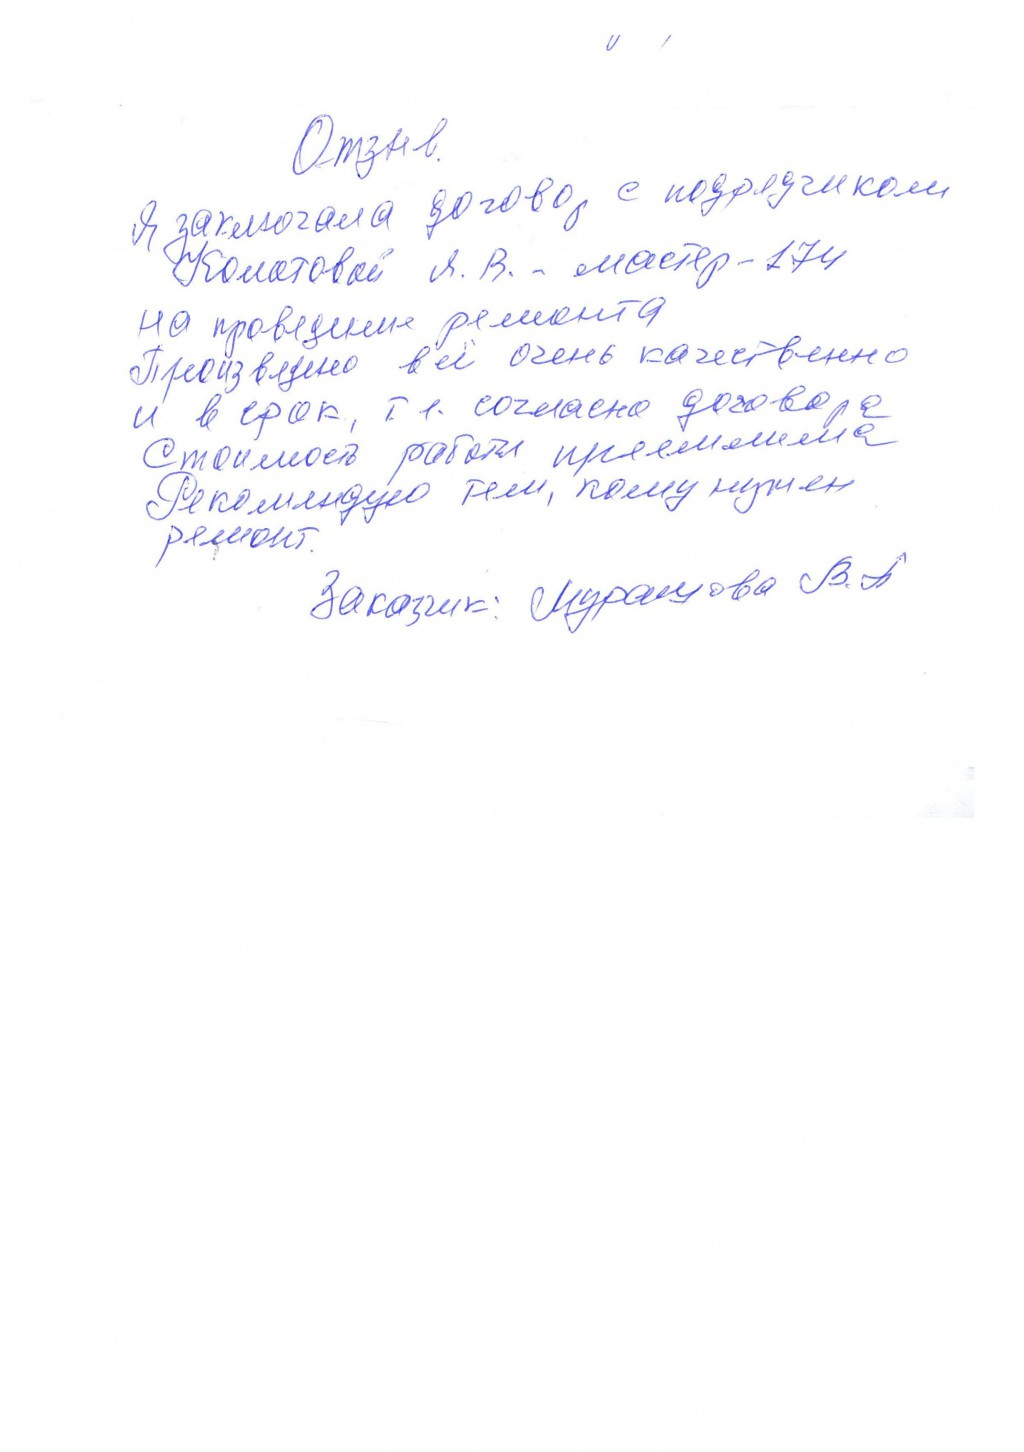 Отзыв.
Я заключала договор с подрядчиком
Колотовой Я. В. - мастер-174
на проведение ремонта
Произведено всё очень качественно
и в срок, т е. согласно договора
Стоимость работы приемлима
Рекомендую тем, кому нужен
ремонт.
Заказчик: В. А